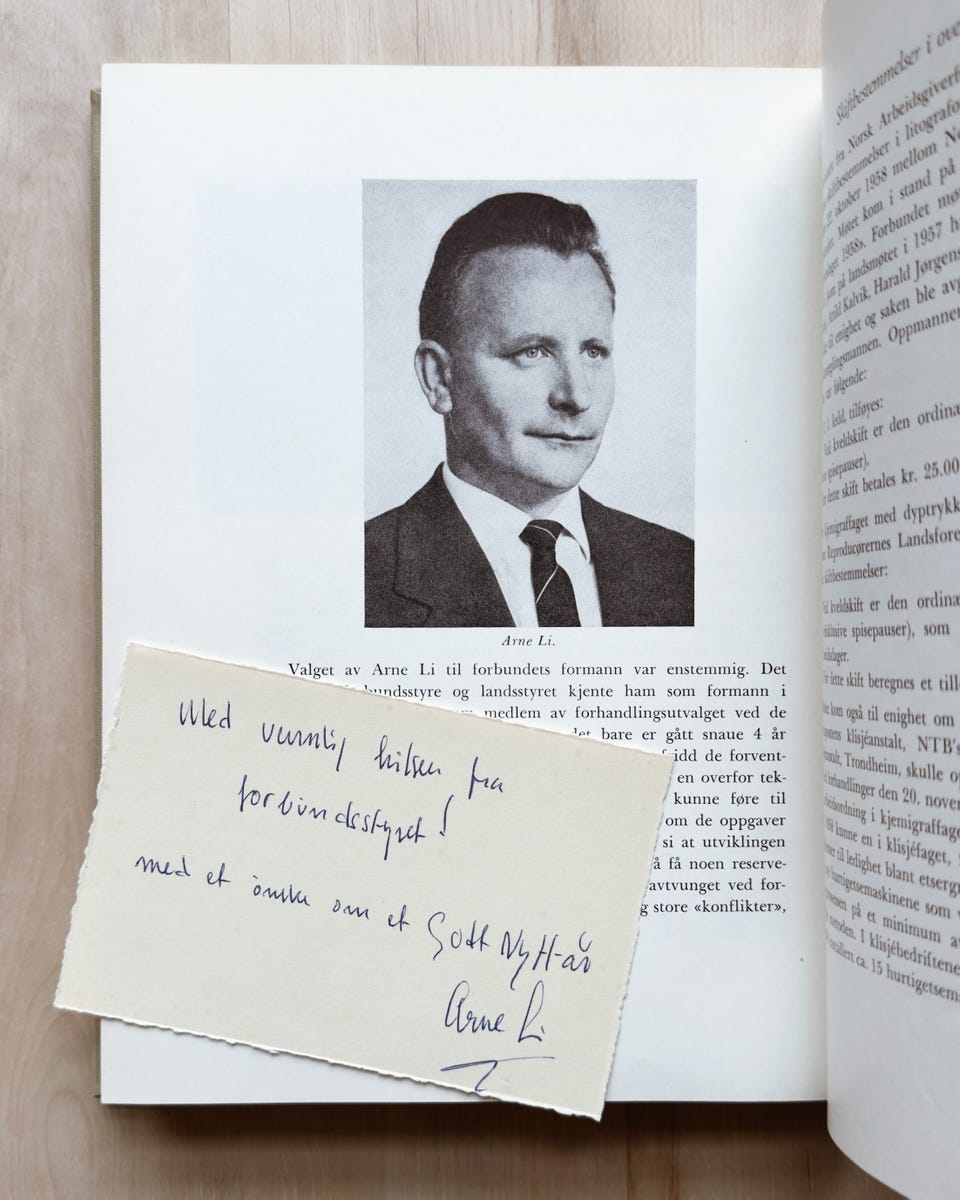 Arne Li.
Valget av Arne Li til forbundets formann var enstemmig. Det
bundsstyre og landsstyret kjente ham som formann i
medlem av forhandlingsutvalget ved de
det bare er gått snaue 4 år
fridd de forvent-
en overfor tek-
kunne føre til
om de oppgaver
si at utviklingen
å få noen reserve-
avtvunget ved for-
g store «konflikter»,
Med vennlig hilsen fra
forbundsstyret!
med et ønske om et Godt Nytt-år
Arne Li
Skiftbestemmelser i ove
fra Norsk Arbeidsgiverf
skiftbestemmelser i litografo
oktober 1958 mellom No
Møtet kom i stand på
laget 1958». Forbundet mø
som på landsmøtet i 1957 h
Arild Kalvik, Harald Jørgens
til enighet og saken ble avg
meglingsmannen. Oppmannen
var følgende:
1. ledd, tilføyes:
Ved kveldskift er den ordinæ
spisepauser).
For dette skift betales kr. 25.00
kjemigraffaget med dyptrykk
Reproducørernes Landsfore
skiftbestemmelser:
Ved kveldskift er den ordinæ
(eksklusive spisepauser), som
For dette skift beregnes et till
kom også til enighet om
klisjéanstalt, NTB's
Trondheim, skulle o
forhandlinger den 20. nove
arbeidsordning i kjemigraffage
1958 kunne en i klisjéfaget,
til ledighet blant etsergr
hurtigetsemaskinene som v
på et minimum a
metoden. I klisjébedriftene
installert ca. 15 hurtigetsem